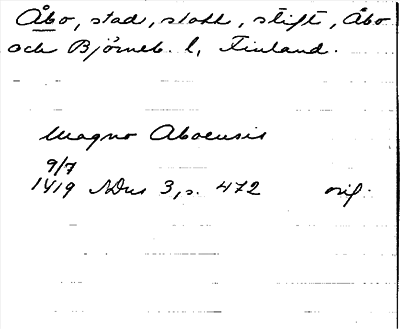 Åbo, stad, slott, stift, Åbo
och Björneb. l, Finland.
Magno Aboensis
9/7
1419 NDns 3, s. 472 orig.